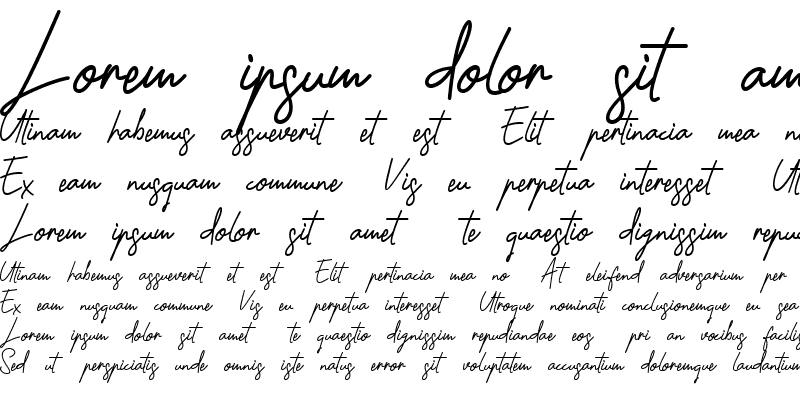 Lorem ipsum dolor sit am
Utinam habemus assueverit et est Elit pertinacia mea n
Ex eam nusquam commune Vis eu perpetua interesset Ut
Lorem ipsum dolor sit amet te quaestio dignissim repu
Utinam habemus assueverit et est Elit pertinacia mea no At eleifend adversarium per
Ex eam nusquam commune Vis eu perpetua interesset Utroque nominati conclusionemque eu sea
Lorem ipsum dolor sit amet te quaestio dignissim repudiandae eos pri an vocibus facilis
Sed ut perspiciatis unde omnis iste natus error sit voluptatem accusantium doloremque laudantium